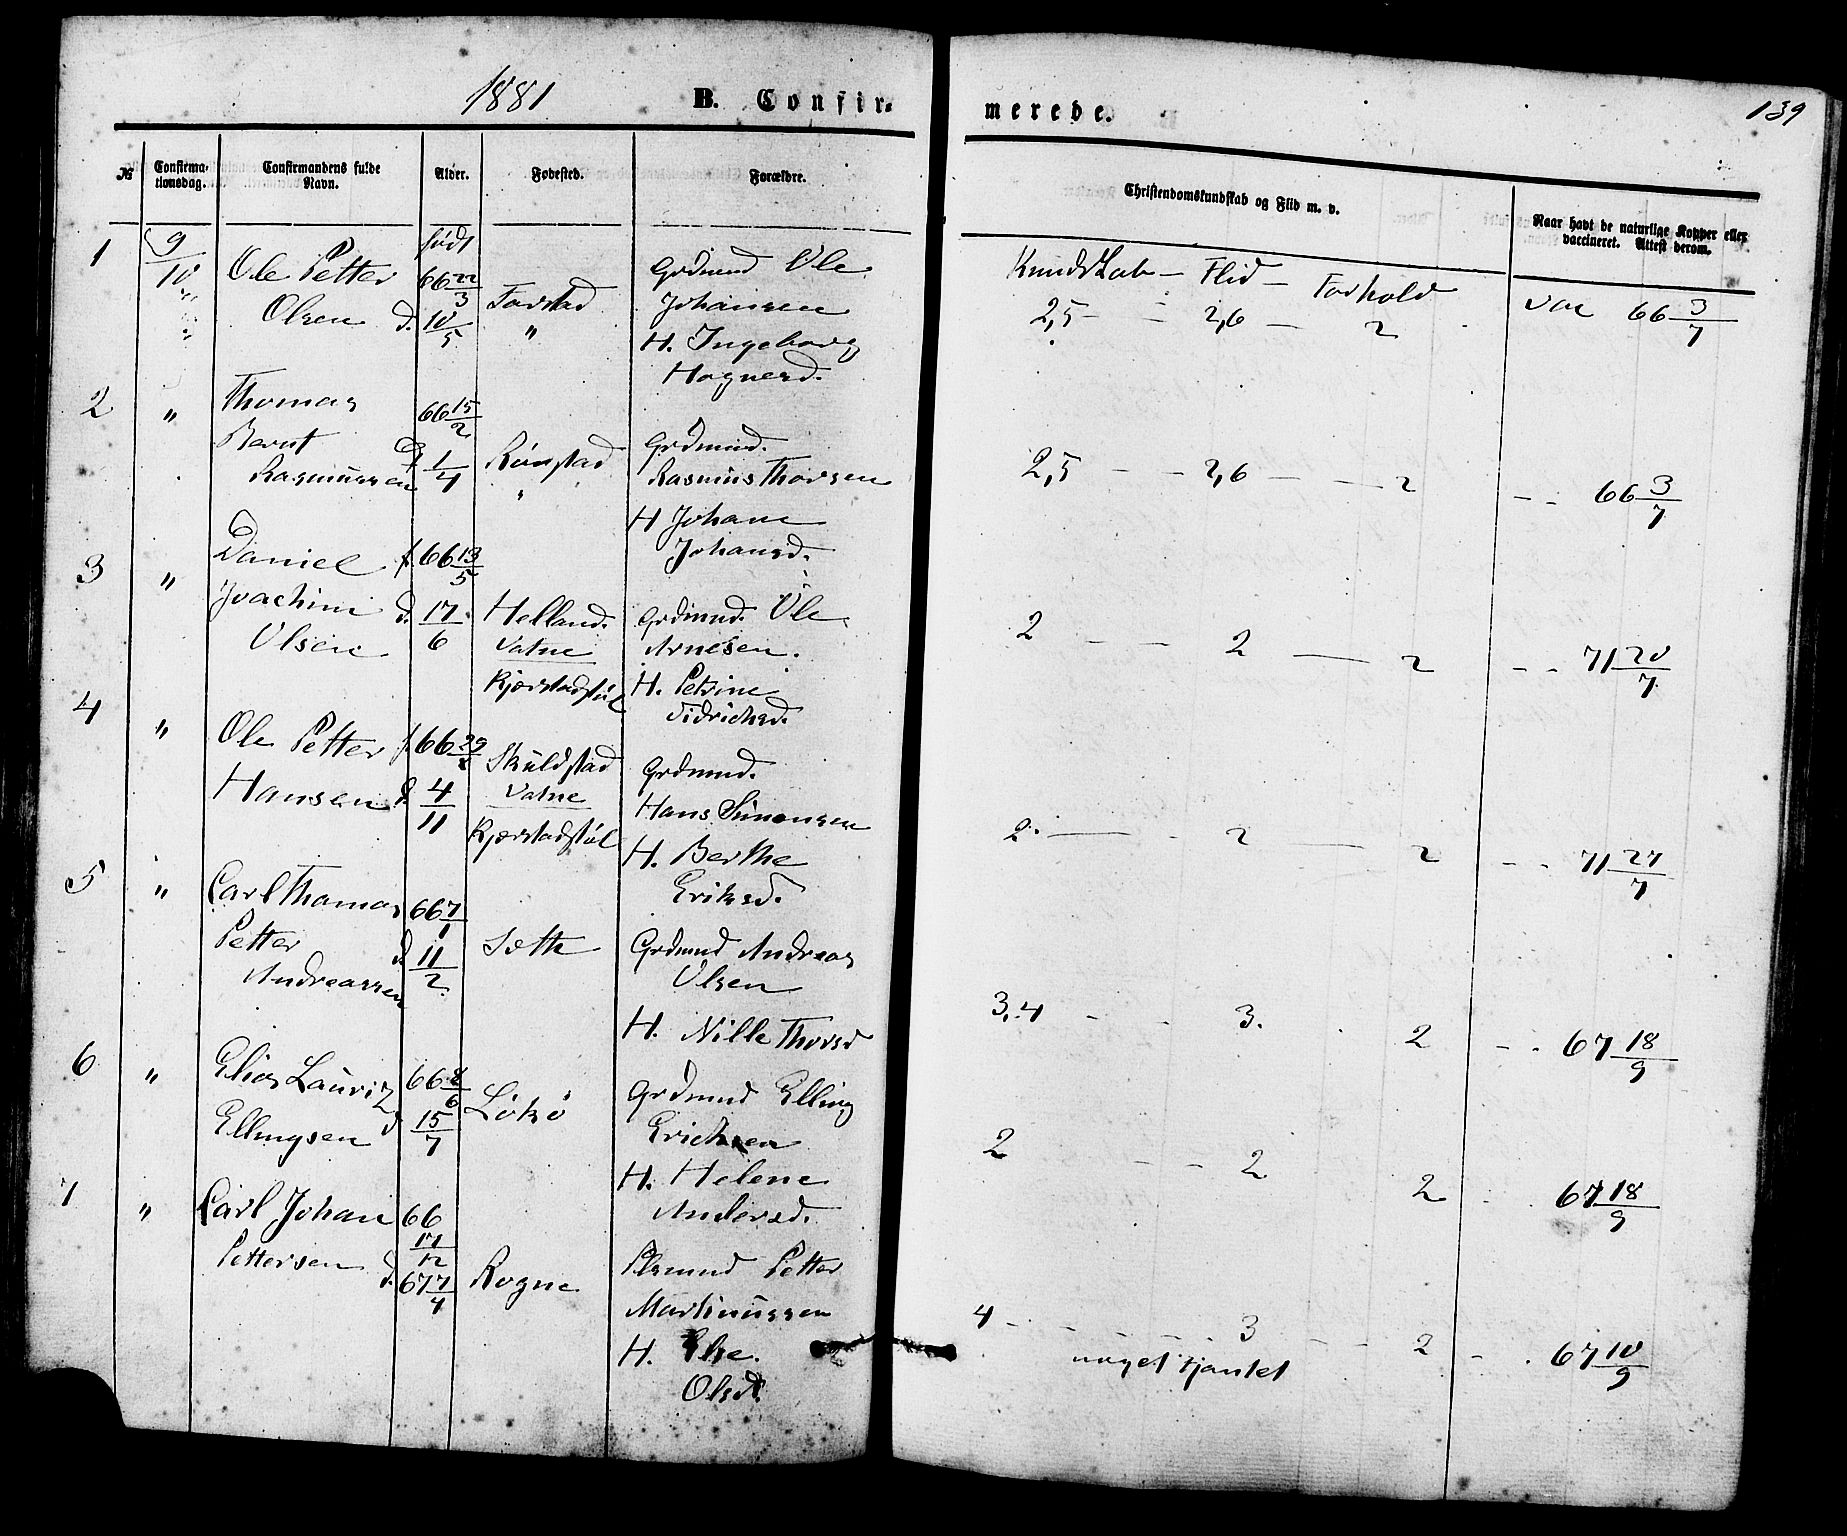 1881 B. Confir-
merede. 139
№ Confirma-tionsdag. Confirmandens fulde Navn. Alder. Fødested. Forældre.
Christendomskundskab og Flid m. v. Naar havt de naturlige Kopper eller vaccineret. Attest derom.
født
Kundskab – Flid – Forhold
1 9/10 Ole Petter 66 22/3 Farstad Grdmnd Ole
Olsen d. 10/5 " Johansen
H. Ingeborg
Hagnesd.
2,5 – 2,6 – 2 vac 66 3/7
2 " Thomas 66 15/2
Bernt Rønstad Grdmnd.
Rasmussen d. 1/4 " Rasmus Thorsen
H Johane
Johansd.
2,5 – – 2,6 – – 2 – – 66 3/7
3 " Daniel f. 66 13/5
Joachim d. 17/6 Helland. Grdmnd. Ole
Olsen Vatne Arnesen.
Kjærstadstøl H. Petrine
Didrichsd.
2 – – 2 – 2 – – 71 20/7
4 " Ole Petter f. 66 29/ Skuldstad Grdmnd.
Hansen d. 4/11 Vatne Hans Simonsen
Kjærstadstøl H. Berthe
Eriksd.
2 – – 2 – 2 – – 71 27/7
5 " Carl Thomas 66 7/1
Petter d. 11/2 Sæth Grdmnd Andreas
Andreassen Olsen
H. Nille Thorsd
3,4 – – 3. 2 – – 67 18/9
6 " Elias Lauritz 66 8/6 Løkø Grdmnd Elling
Ellingsen d 15/7 Ericksen
H. Helene
Andersd.
2 – – 2 2 – 67 18/9
7 " Carl Johan 66 17/12
Pettersen d. 67 7/4 Rogne Plsmnd Petter
Martinussen
H. Else.
Olsd.
4 – – – – 3 – – 2 – . 67 10/9
noget tjantet